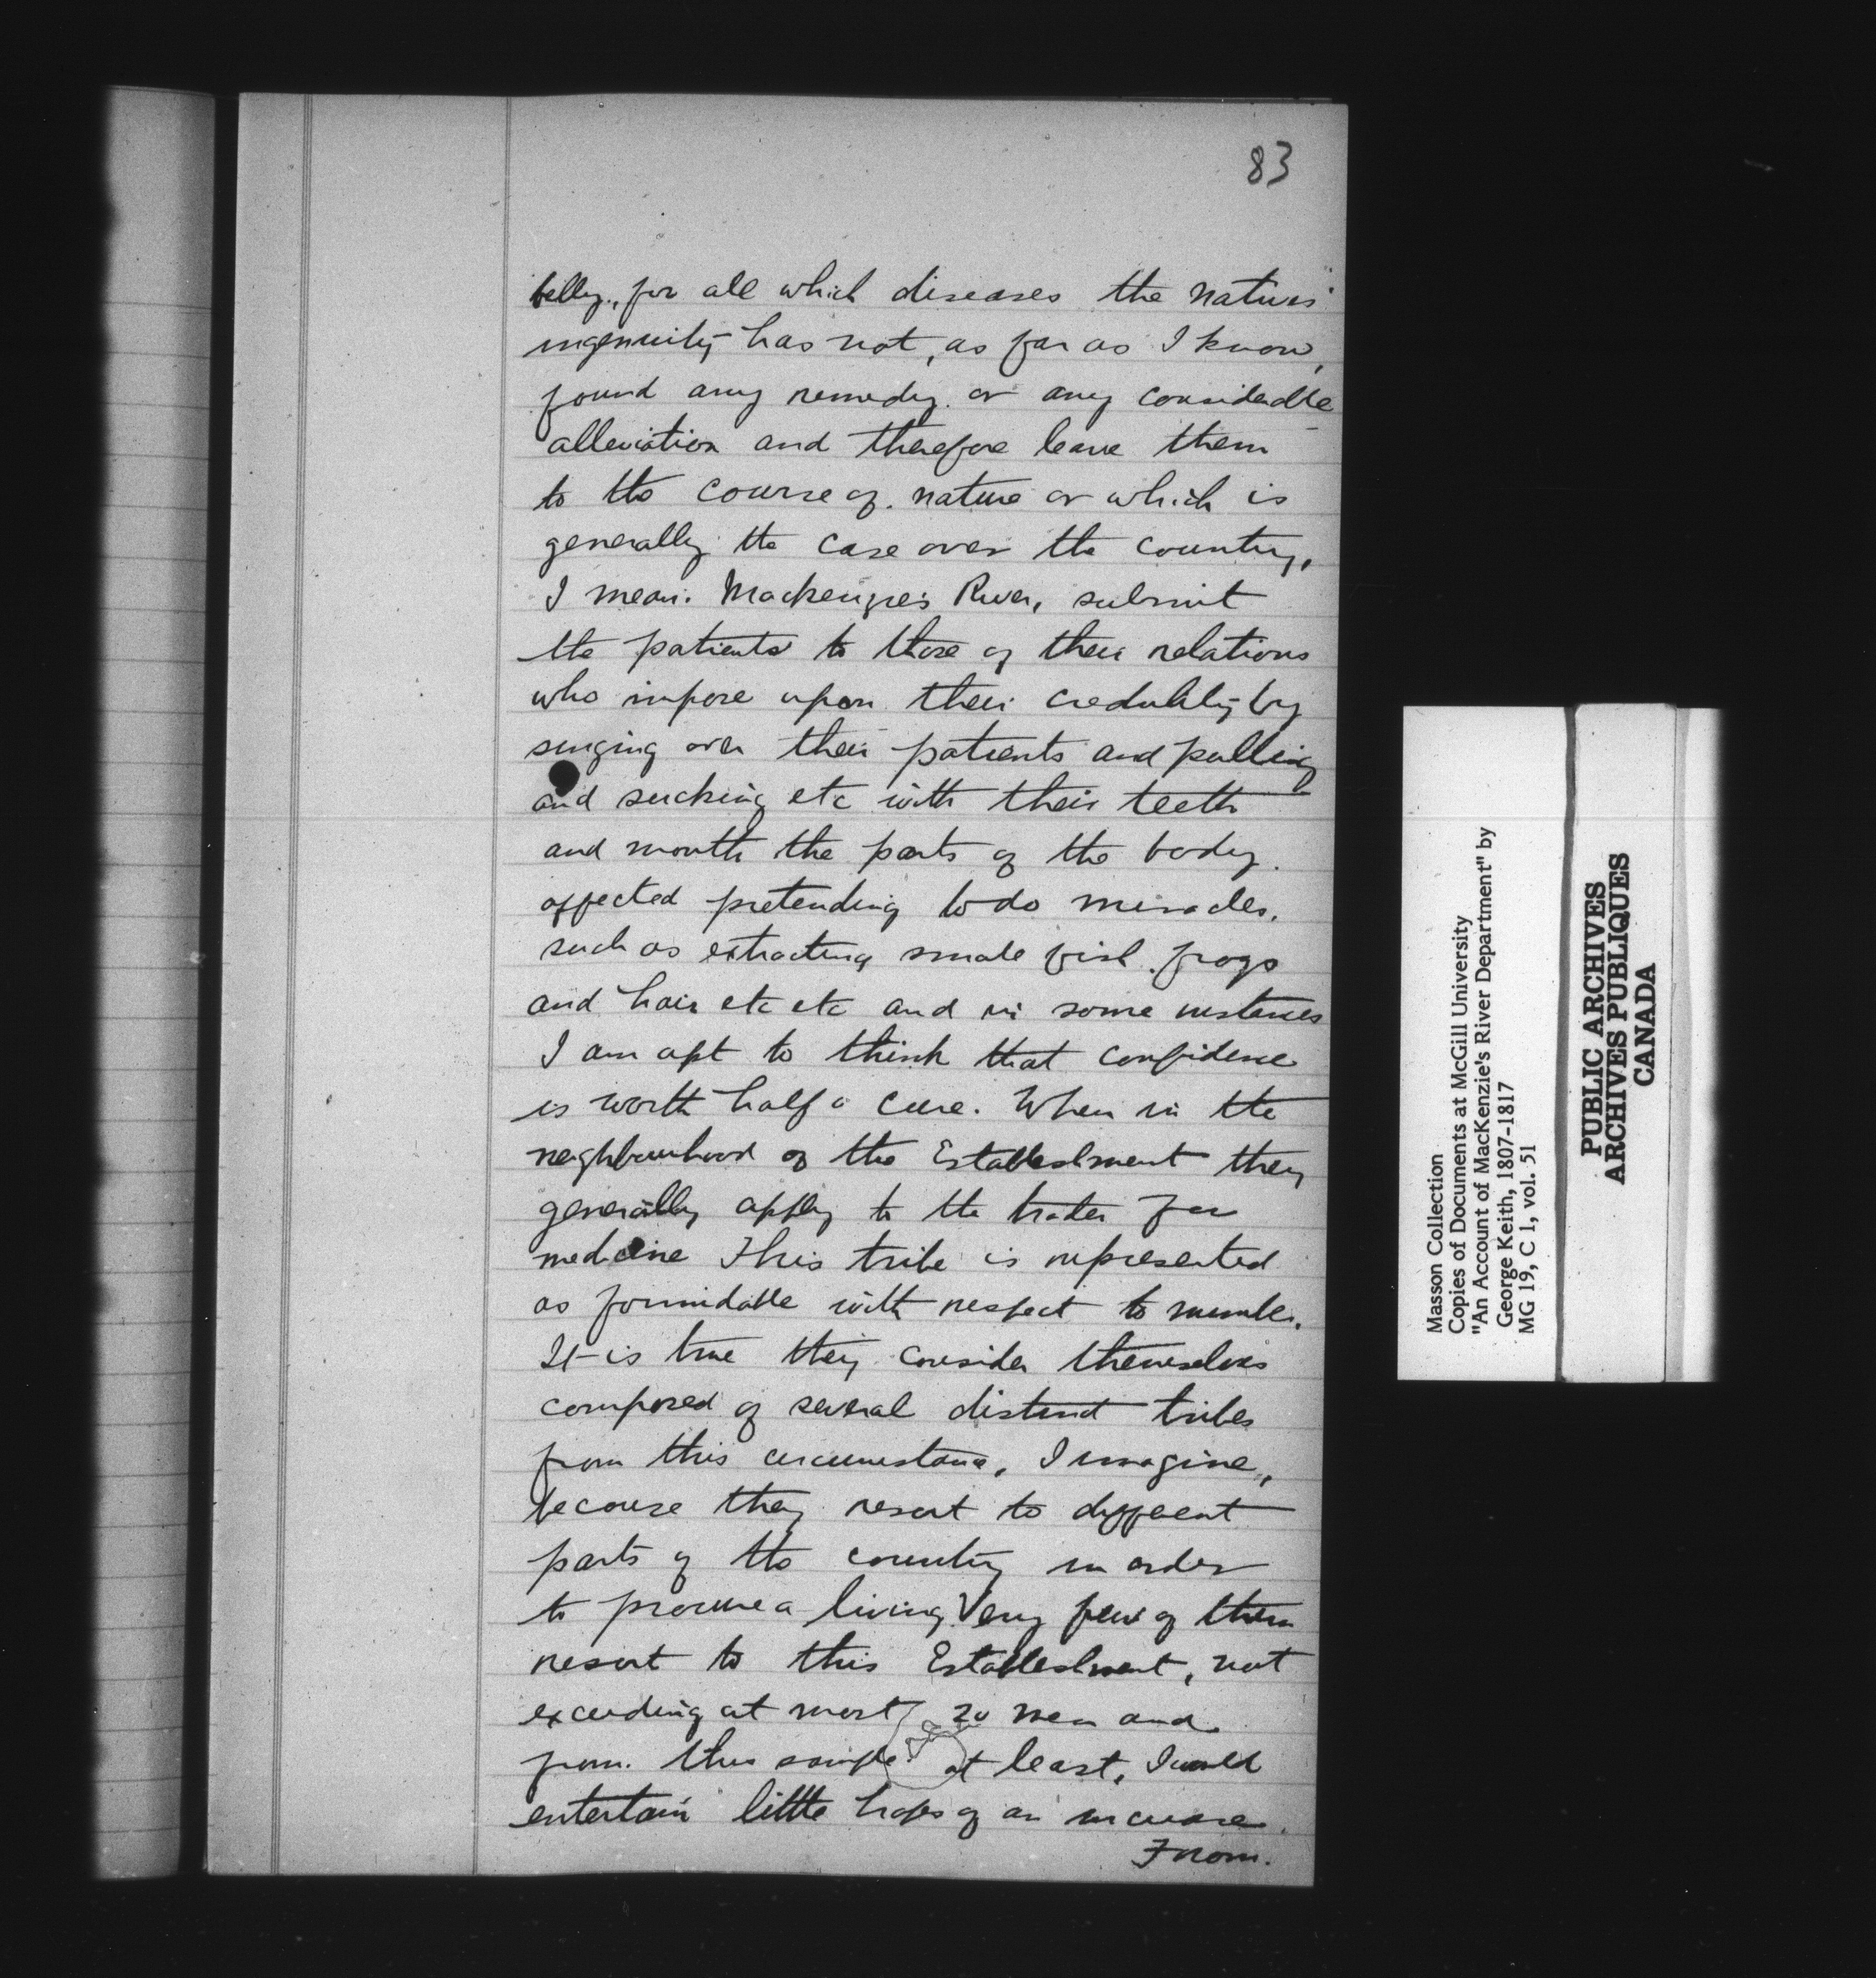 83
belly, for all which diseases the natives'
ingenuity has not, as far as I know,
found any remedy or any considerable
alleviation and therefore leave them
to the course of nature or which is
generally the case over the country,
I mean Mackenzie's River, submit
the patients to those of their relations
who impose upon their credulity by
singing over their patients and pulling
and sucking etc with their teeth
and mouth the parts of the body
affected pretending to do miracles,
such as extracting small fish frogs
and hair etc etc and in some instances
I am apt to think that confidence
is worth half a cure. When in the
neighbourhood of the Establishment they
generally apply to the trader for
medicine This tribe is represented
as formidable with respect to number.
It is true they consider themselves
composed of several distinct tribes
from this circumstance, I imagine,
because they resort to different
parts of the country in order
to procure a living Very few of them
resort to this Establishment, not
exceeding at most 20 men and
from this at least, I would
entertain little hopes of an increase.
From.
Masson Collection
Copies of Documents at McGill University
"An Account of MacKenzie's River Department" by
George Keith, 1807-1817
MG 19, C 1, vol. 51
PUBLIC ARCHIVES
ARCHIVES PUBLIQUES
CANADA